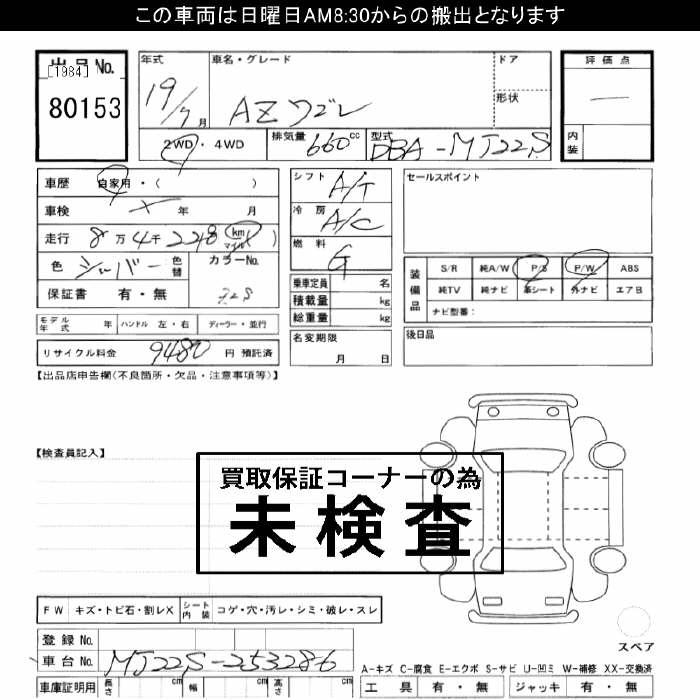 この車両は日曜日AM8:30からの搬出となります
出品No.
[1984]
80153
年式
19/7月
車名・グレード
AZワゴン
ドア
形状
評価点
—
内装
2WD・4WD
排気量
660cc
型式
DBA-MJ22S
車歴 自家用・( )
車検 年 月
走行 8万4千228(km マイル)
色 シルバー 色替
カラーNo.
Z2S
保証書 有・無
シフト A/T
冷房 A/C
燃料 G
乗車定員 名
積載量 kg
総重量 kg
セールスポイント
装備品
S/R 純A/W P/S P/W ABS
純TV 純ナビ 革シート 外ナビ エアB
ナビ型番:
モデル年式 年 ハンドル 左・右 ディーラー・並行
リサイクル料金 9480 円 預託済
名変期限
月 日
後日品
【出品店申告欄(不良箇所・欠品・注意事項等)】
【検査員記入】
買取保証コーナーの為
未検査
FW キズ・トビ石・割レX シート内装 コゲ・穴・汚レ・シミ・破レ・スレ
スペア
登録No.
車台No. MJ22S-253286
A-キズ C-腐食 E-エクボ S-サビ U-凹ミ W-補修 XX-交換済
車庫証明用 長さ cm 幅 cm 高さ cm
工具 有・無 ジャッキ 有・無